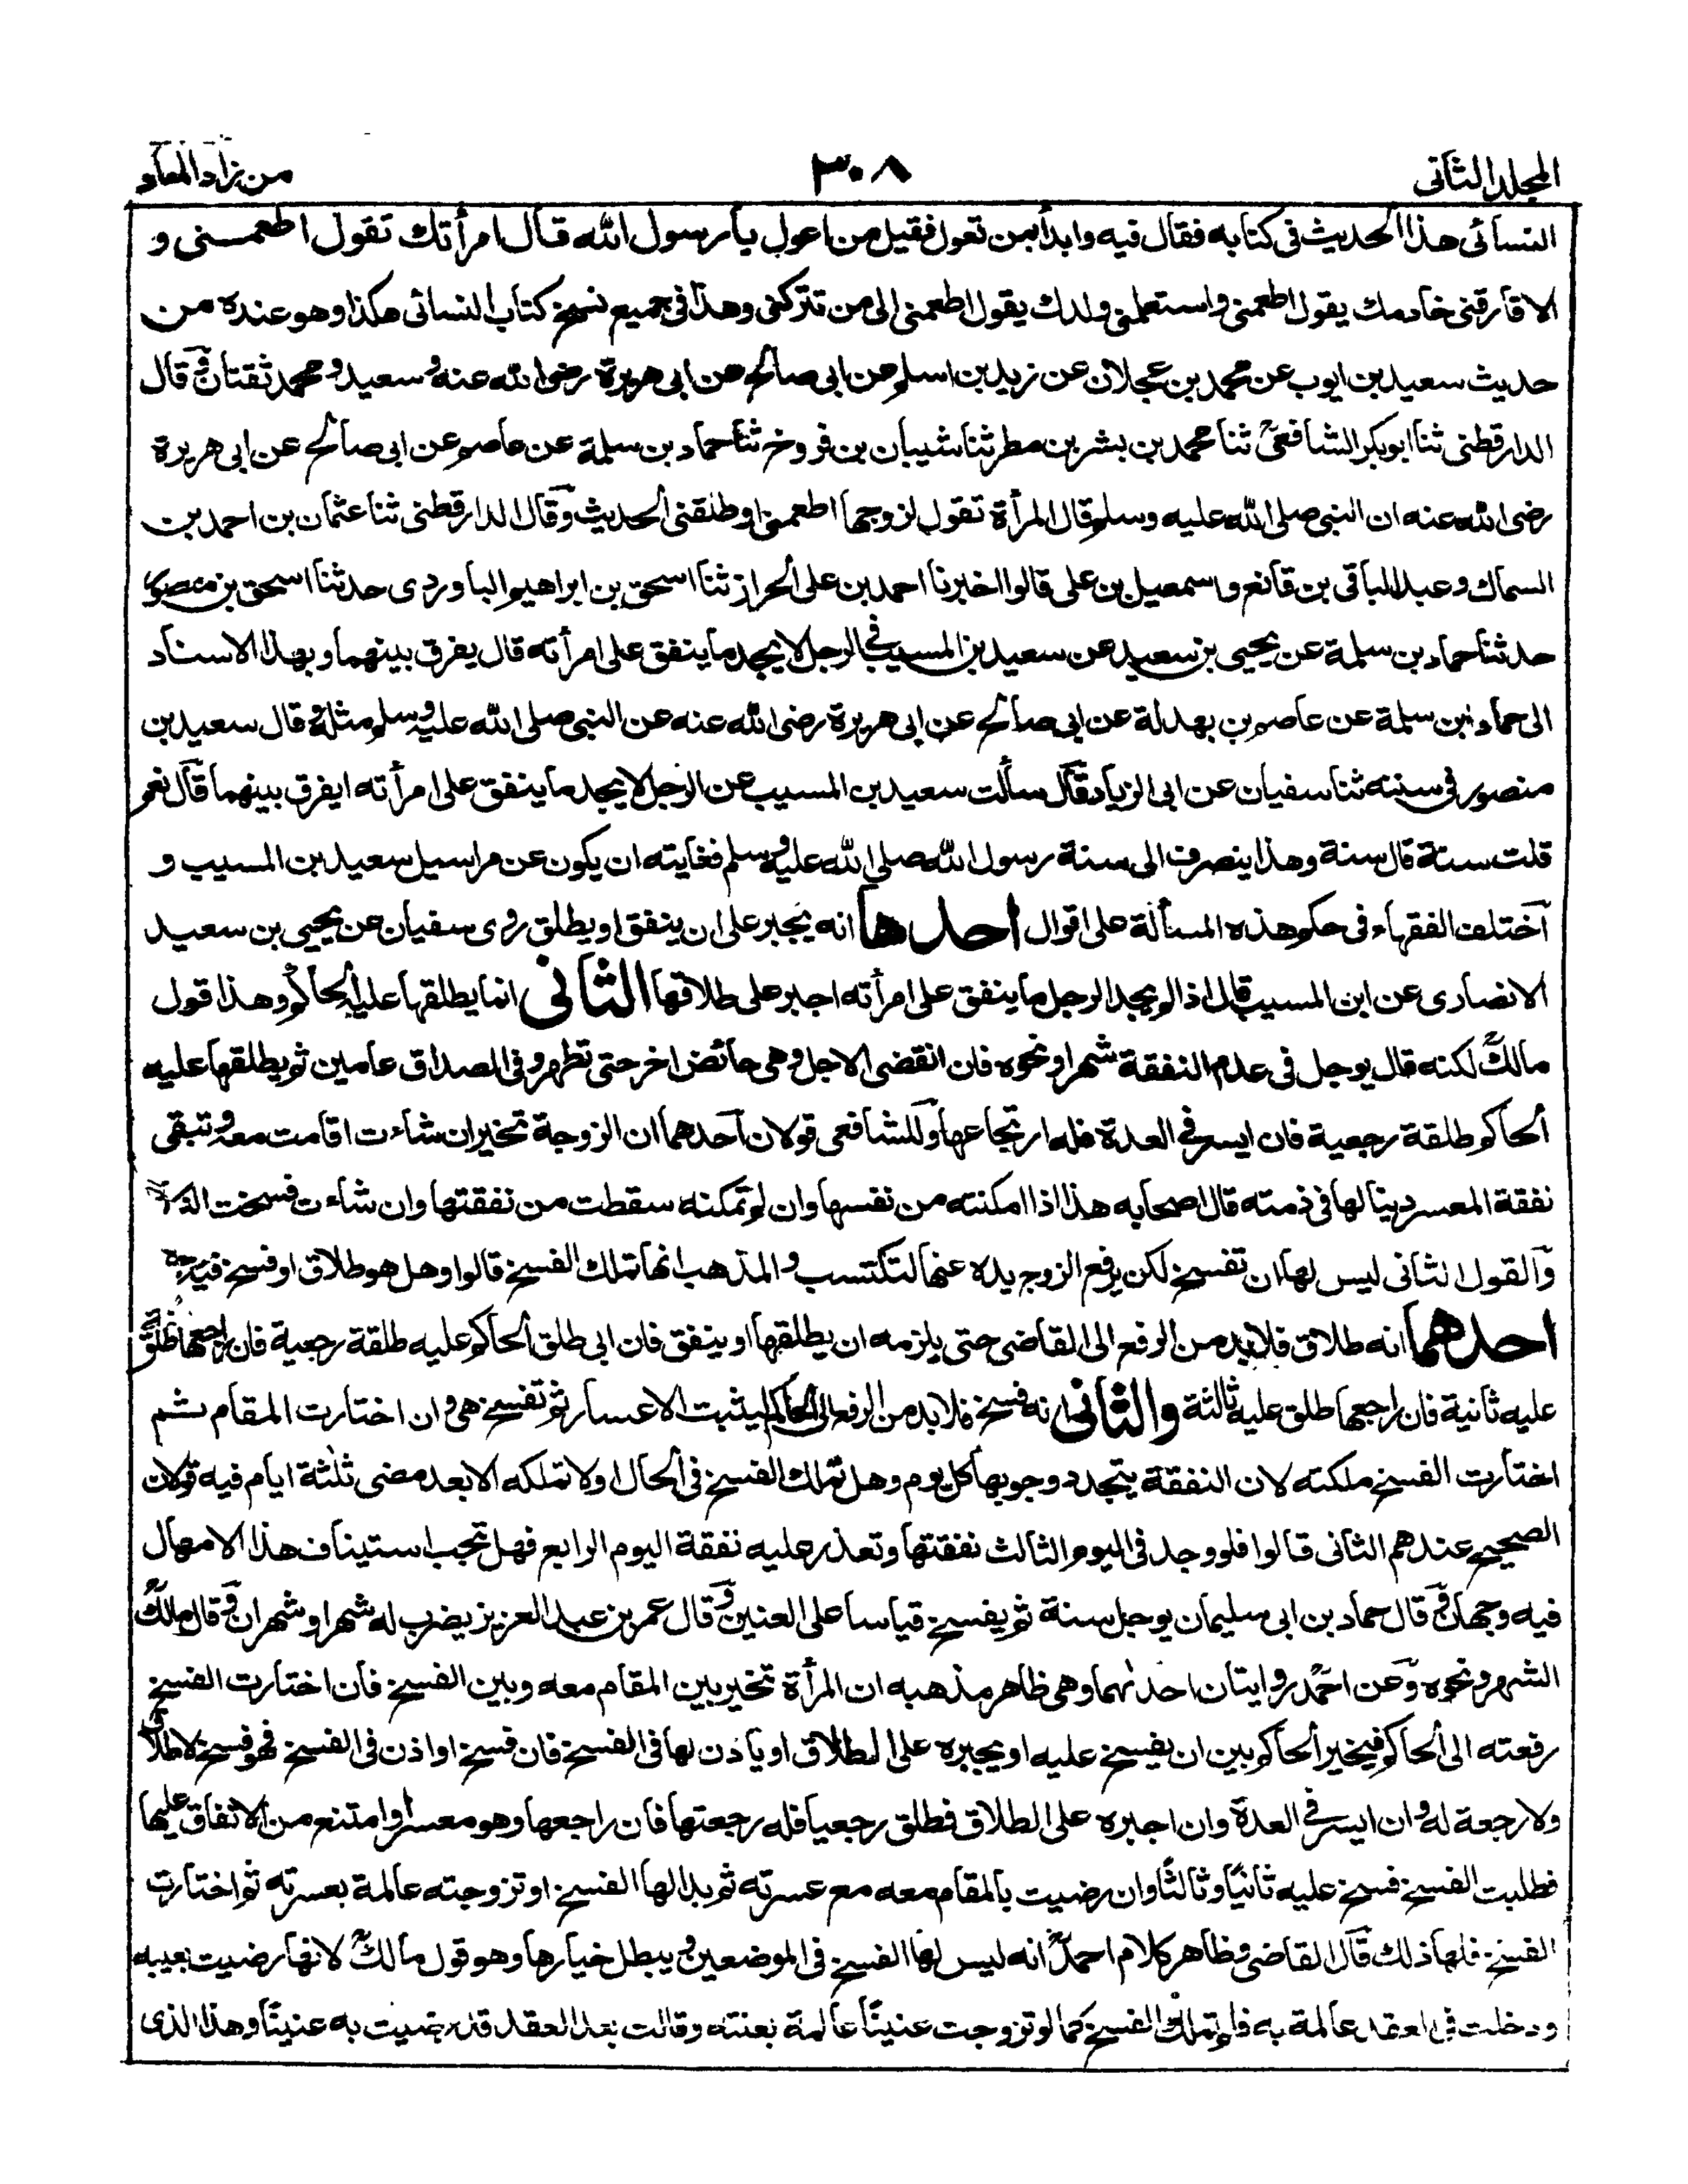 المجلد الثانی
٣٠٨
من زاد المعاد
النسائی هذا الحدیث فی کتابه فقال فیه وابدأ بمن تعول فقیل من اعول یا رسول الله قال امرأتك تقول اطعمنی و
الا فارقنی خادمك یقول اطعمنی واستعملنی ولدك یقول اطعمنی الی من تترکنی وهذا فی جمیع نسخ کتاب النسائی هکذا وهو عنده من
حدیث سعید بن ایوب عن محمد بن عجلان عن زید بن اسلم عن ابی صالح عن ابی هریرة رضی الله عنه وسعید ومحمد ثقتان وقال
الدارقطنی ثنا ابوبکر الشافعی ثنا محمد بن بشر بن مطر ثنا شیبان بن فروخ ثنا حماد بن سلمة عن عاصم عن ابی صالح عن ابی هریرة
رضی الله عنه ان النبی صلی الله علیه وسلم قال المرأة تقول لزوجها اطعمنی او طلقنی الحدیث وقال الدارقطنی ثنا عثمان بن احمد بن
السماك وعبد الباقی بن قانع واسمعیل بن علی قالوا اخبرنا احمد بن علی الخراز ثنا اسحق بن ابراهیم الباوردی حدثنا اسحق بن منصور
حدثنا حماد بن سلمة عن یحیی بن سعید عن سعید بن المسیب فی الرجل لا یجد ما ینفق علی امرأته قال یفرق بینهما وبهذا الاسناد
الی حماد بن سلمة عن عاصم بن بهدلة عن ابی صالح عن ابی هریرة رضی الله عنه عن النبی صلی الله علیه وسلم مثله وقال سعید بن
منصور فی سننه ثنا سفیان عن ابی الزناد قال سألت سعید بن المسیب عن الرجل لا یجد ما ینفق علی امرأته ایفرق بینهما قال نعم
قلت سنة قال سنة وهذا ینصرف الی سنة رسول الله صلی الله علیه وسلم فغایته ان یکون عن مراسیل سعید بن المسیب و
اختلف الفقهاء فی حکم هذه المسألة علی اقوال احدها انه یجبر علی ان ینفق او یطلق روی سفیان عن یحیی بن سعید
الانصاری عن ابن المسیب قال اذا لم یجد الرجل ما ینفق علی امرأته اجبر علی طلاقها الثانی انما یطلقها علیه الحاکم وهذا قول
مالك لکنه قال یوجل فی عدم النفقة شهرا ونحوه فان انقضی الاجل وهی حائض اخر حتی تطهر وفی الصداق عامین ثم یطلقها علیه
الحاکم طلقة رجعیة فان ایسر فی العدة فله ارتجاعها وللشافعی قولان احدهما ان الزوجة تخیر ان شاءت اقامت معه وتبقی
نفقة المعسر دینا لها فی ذمته قال اصحابه هذا اذا امکنته من نفسها وان لم تمکنه سقطت من نفقتها وان شاءت فسخت النکاح
والقول الثانی لیس لها ان تفسخ لکن یرفع الزوج یده عنها لتکتسب والمذهب انها تملك الفسخ قالوا وهل هو طلاق او فسخ فیه وجهان
احدهما انه طلاق فلابد من الرفع الی القاضی حتی یلزمه ان یطلقها او ینفق فان ابی طلق الحاکم علیه طلقة رجعیة فان راجعها طلق
علیه ثانیة فان راجعها طلق علیه ثالثة والثانی انه فسخ فلابد من الرفع الی الحاکم لیثبت الاعسار ثم تفسخ هی وان اختارت المقام ثم
اختارت الفسخ ملکته لان النفقة یتجدد وجوبها کل یوم وهل تملك الفسخ فی الحال او لا تملکه الا بعد مضی ثلثة ایام فیه قولان
الصحیح عندهم الثانی قالوا فلو وجد فی الیوم الثالث نفقتها وتعذر علیه نفقة الیوم الرابع فهل تجب استیناف هذا الامهال
فیه وجهان وقال حماد بن ابی سلیمان یوجل سنة ثم یفسخ قیاسا علی العنین وقال عمر بن عبد العزیز یضرب له شهرا وشهران وقال مالك
الشهر ونحوه وعن احمد روایتان احدٰهما وهی ظاهر مذهبه ان المرأة تخیر بین المقام معه وبین الفسخ فان اختارت الفسخ
رفعته الی الحاکم فیخیر الحاکم بین ان یفسخ علیه او یجبره علی الطلاق او یاذن لها فی الفسخ فان فسخ او اذن فی الفسخ فهو فسخ لا طلاق
ولا رجعة له وان ایسر فی العدة وان اجبره علی الطلاق فطلق رجعیا فله رجعتها فان راجعها وهو معسر او امتنع من الانفاق علیها
فطلبت الفسخ فسخ علیه ثانیًا وثالثًا وان رضیت بالمقام معه مع عسرته ثم بدا لها الفسخ او تزوجته عالمة بعسرته ثم اختارت
الفسخ فلها ذلك قال القاضی وظاهر کلام احمد انه لیس لها الفسخ فی الموضعین ویبطل خیارها وهو قول مالك لانها رضیت بعیبه
ودخلت فی العقد عالمة به فلم تملك الفسخ کما لو تزوجت عنینًا عالمة بعنته وقالت بعد العقد قد رضیت به عنینًا وهذا الذی